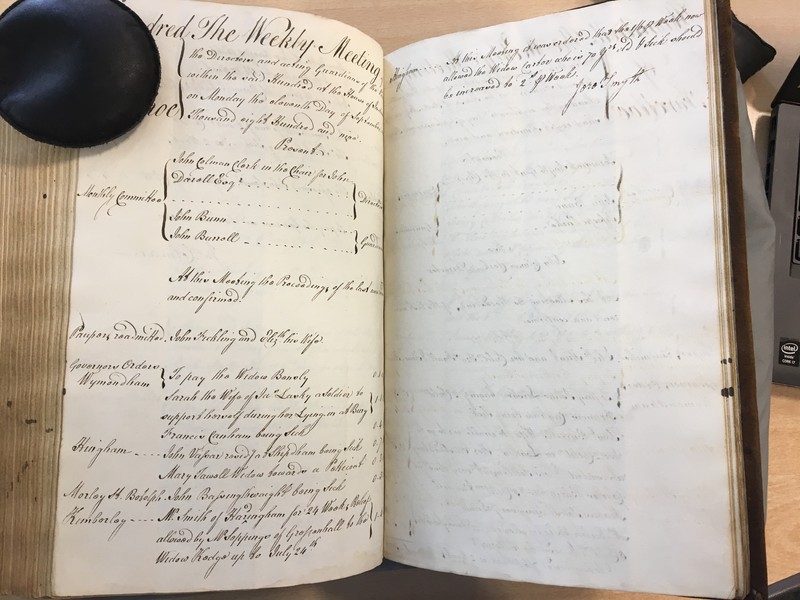 dred The Weekly Meeting
the Directors and acting Guardians of the
within the said Hundred at the House of
on Monday the Eleventh day of September
Thousand eight Hundred and nine.
Present.
John Colman Clerk in the Chair for John
Esqr
Monthly Committee
John Bunn
John Burrell
At this Meeting the Proceedings of the last
and confirmed.
Paupers readmitted. John Fickling and Elizth his Wife
Governors Orders
Wymondham
To pay the Widow
Sarah the Wife of Jas Lasky a Soldier to
support herself during her Lying in at Bury
Francis Canham being Sick
Hingham John resid: at Shipdham being Sick
Mary Widow towards a Petticoat
Morley St. Botolph. John Bassingthwaight being Sick
Kimberley Mr. Smith of Hardingham for 24 Weeks Relief
allowed by Mr. Toppings of Gressenhall to the
Widow up to July 24th
At this Meeting it was ordered that the 1s/6 p Week now
allowed the Widow Carter who is 70 Yrs old & Sick should
be increased to 2s p Week.
Jno Smyth
intel
inside
CORE i7